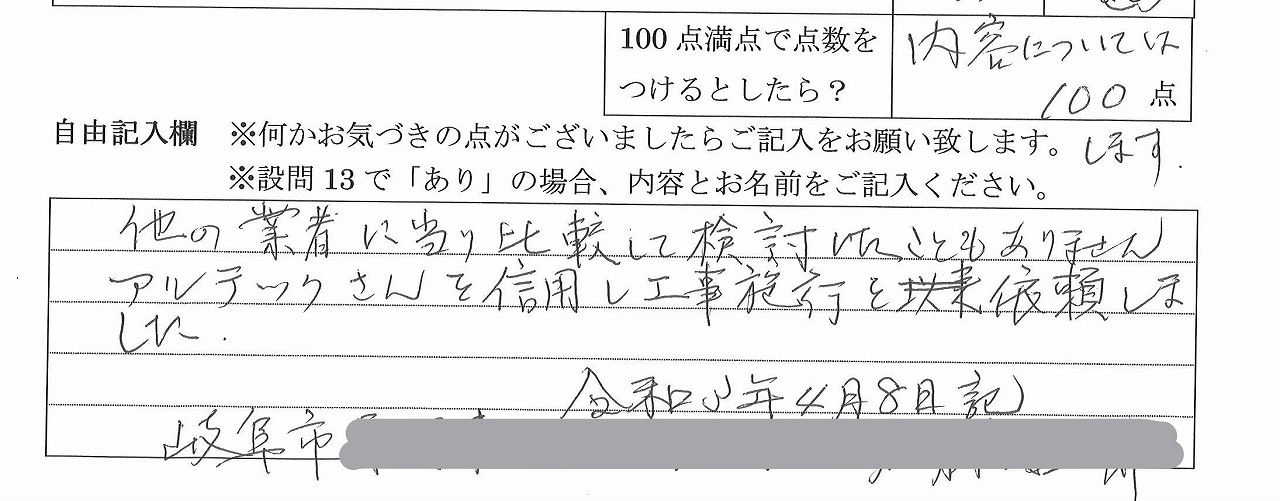 100点満点で点数を
つけるとしたら？
内容については
100 点
します.
自由記入欄 ※何かお気づきの点がございましたらご記入をお願い致します。
※設問13で「あり」の場合、内容とお名前をご記入ください。
他の業者に当り比較して検討したこともありません
アルテックさんを信用し工事施行を依頼しま
した.
令和3年4月8日記
岐阜市